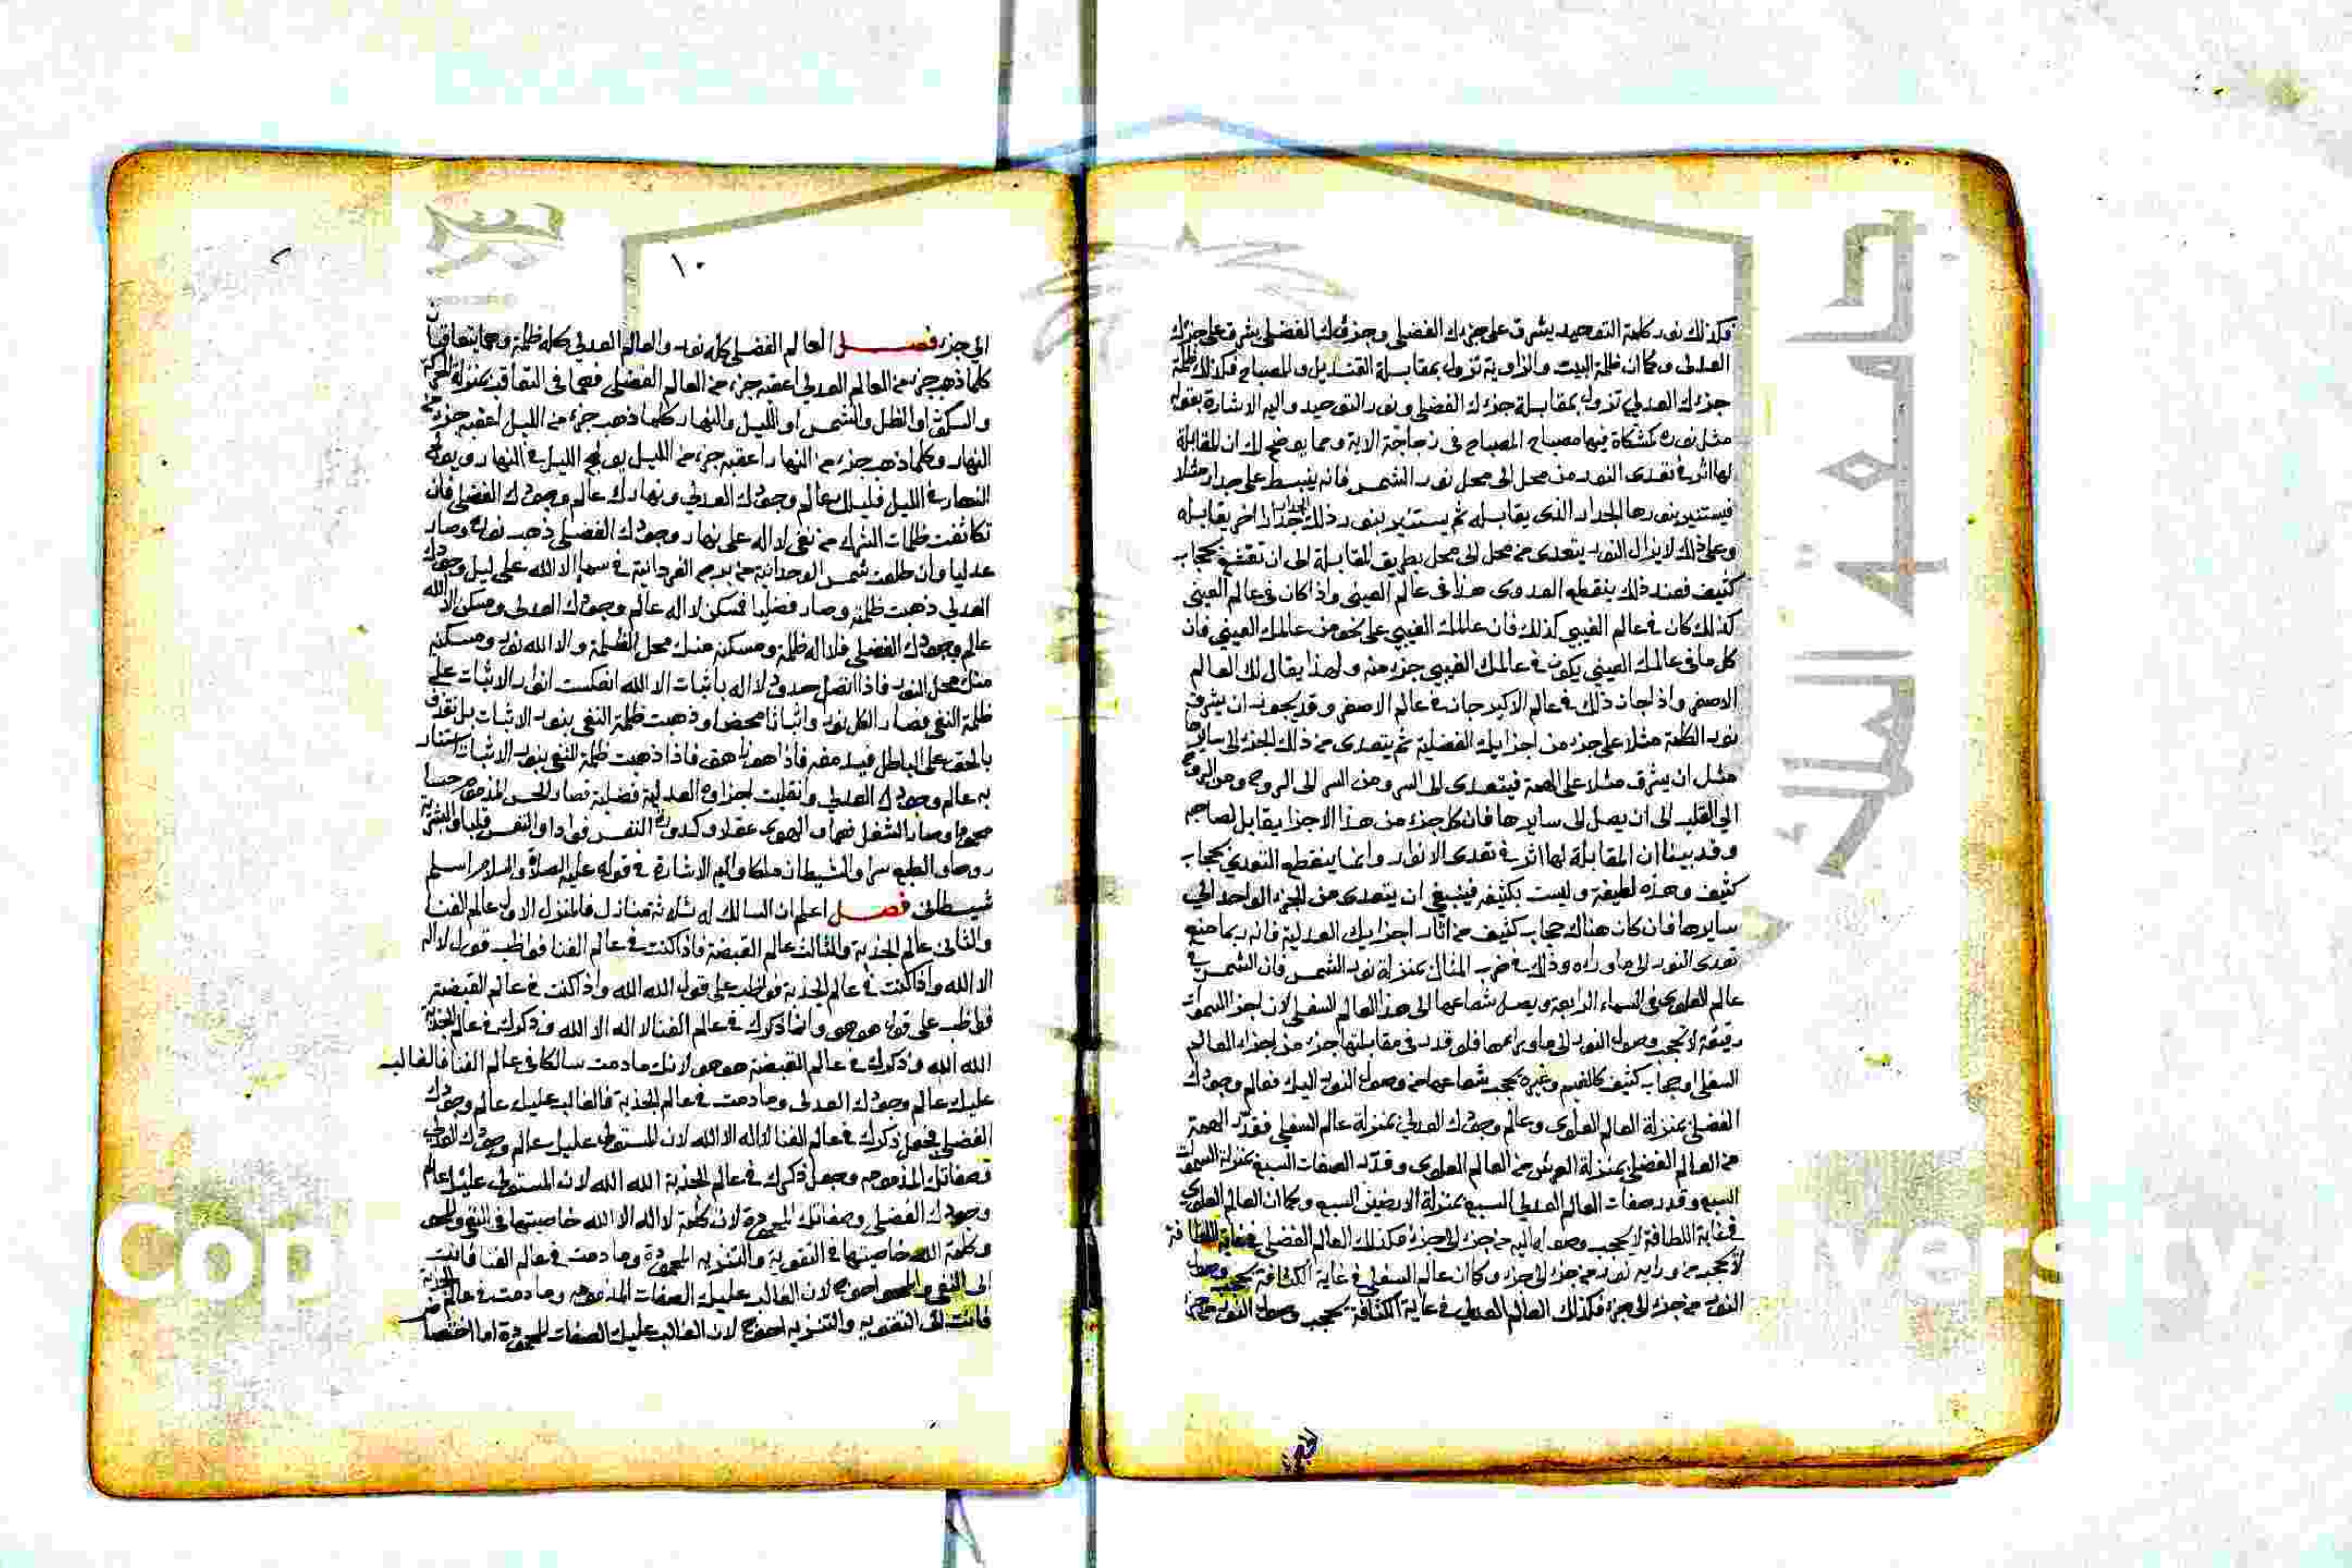 فكذلك نور كلمة التوحيد يشرق على جزءك الفضلي وجزؤك الفضلي يشرق على جزءك
العدلي وكما ان ظلمة البيت والزاوية تزول بمقابلة القنديل والمصباح فكذلك ظلمة
جزءك العدلي تزول بمقابلة جزءك الفضلي ونور التوحيد واليه الاشارة بقوله
مثل نوره كمشكاة فيها مصباح المصباح في زجاجة الاية ومما يوضح لك ان للمقابلة
لها اثر في تعدى النور من محل الى محل نور الشمس فانه ينبسط على جدار مثلا
فيستنير بنورها الجدار الذى يقابله ثم يستنير بنور ذلك الجدار جدار اخر يقابله
وعلى ذلك لا يزال النور يتعدى من محل الى محل بطريق المقابلة الى ان بحجاب
كثيف فعند ذلك ينقطع العدوى هذا في عالم العيني واذا كان في عالم العيني
كذلك كان في عالم الغيبي كذلك فان عالمك الغيبي على نحو من عالمك العيني فان
كل ما في عالمك العيني يكون في عالمك الغيبي جزء منه ولهذا يقال لك العالم
الاصغر واذا جاز ذلك في عالم الاكبر جاز في عالم الاصغر وقد يجوز ان يشرق
نور الكلمة مثلا على جزء من اجزايك الفضلية ثم يتعدى من ذلك الجزء الى سايرها
مثل ان يشرق مثلا على الهمة فيتعدى الى السر ومن السر الى الروح ومن الروح
الى القلب الى ان يصل الى سايرها فان كل جزء من هذا الاجزا يقابل لصاحبه
وقد بينا ان المقابلة لها اثر في تعدى الانوار وانما ينقطع التعدي بحجاب
كثيف وهذه لطيفة وليست بكثيفة فينبغي ان يتعدى من الجزء الواحد الى
سايرها فان كان هناك حجاب كثيف من اثار اجزايك العدلية فانه ربما منع
تعدى النور الى ما وراه وذلك في ضرب المثال بمنزلة نور الشمس فان الشمس في
عالم العلوى في السماء الرابعة ويصل شعاعها الى هذا العالم السفلى لان اجزا السموات
رقيقة لا تحجب وصول النور الى ما ورايها فلو قدر في مقابلتها جزء من اجزاء العالم
السفلى او حجاب كثيف كالغيم وغيره يحجب شعاعها من وصول النور اليك فعالم وجودك
الفضلي بمنزلة العالم العلوى وعالم وجودك العدلي بمنزلة عالم السفلى فقدر الهمة
من العالم الفضلي بمنزلة العرش من العالم العلوى وقدر الصفات السبع بمنزلة السموات
السبع وقدر صفات العالم العدلي السبع بمنزلة الارضين السبع وكما ان العالم العلوي
في غاية اللطافة لا يحجب وصوله اليه من جزء الى جزء فكذلك العالم الفضلي في غاية اللطافة
لا يحجب من ورايه نوره من جزء الى جزء وكما ان عالم السفلى في غاية الكثافة يحجب وصول
النور من جزء الى جزء فكذلك العالم العدلي في غاية الكثافة يحجب وصول النور من جزء
١٠
الى جزء فصل العالم الفضلي كله نور والعالم العدلي كله ظلمة وهما يتعاقبان
كلما ذهب جزء من العالم العدلي اعقبه جزء من العالم الفضلي فهما في التعاقب بمنزلة الحركة
والسكون او الظل والشمس او الليل والنهار كلما ذهب جزء من الليل اعقبه جزء من
النهار وكلما ذهب جزء من النهار اعقبه جزء من الليل يولج الليل في النهار ويولج
النهار في الليل فليلك عالم وجودك العدلي ونهارك عالم وجودك الفضلي فان
تكاثفت ظلمات الشرك من نفى لا اله على نهار وجودك الفضلي ذهب نوره وصار
عدليا وان طلعت شمس الوحدانية من برج الفردانية في سما الا الله على ليل وجودك
العدلي ذهبت ظلمته وصار فضليا فمسكن لا اله عالم وجودك العدلي ومسكن الا الله
عالم وجودك الفضلي فلا اله ظلمة ومسكنه منك محل الظلمة والا الله نور ومسكنه
منك محل النور فاذا اتصل حدود لا اله باثبات الا الله انعكست انوار الاثبات على
ظلمة النفى فصار الكل نورا واثباتا محضا وذهبت ظلمة النفى بنور الاثبات بل نقذف
بالحق على الباطل فيدمغه فاذا هو زاهق فاذا ذهبت ظلمة النفى بنور الاثبات استنار
به عالم وجودك العدلي وانقلبت اجزاوه العدلية فضلية فصار الحس المذموم حسا
محمودا وصار الشغل فهما والهوى عقلا وكدورة النفس فوادا والنفس قلبا والبشرية
روحا والطبع سرا والشيطان ملكا واليه الاشارة في قوله عليه الصلاة والسلام اسلم
شيطانى فصل اعلم ان السالك له ثلاثة منازل فالمنزل الاول عالم الفنا
والثانى عالم الجذبة والثالث عالم القبضة فاذا كنت في عالم الفنا فواظب قول لا اله
الا الله واذا كنت في عالم الجذبة فواظب على قول الله الله واذا كنت في عالم القبضة
فواظب على قول هو هو وانما ذكرك في عالم الفنا لا اله الا الله وذكرك في عالم الجذبة
الله الله وذكرك في عالم القبضة هو هو لانك ما دمت سالكا في عالم الفنا فالغالب
عليك عالم وجودك العدلي وما دمت في عالم الجذبة فالغالب عليك عالم وجودك
الفضلي فجعل ذكرك في عالم الفنا لا اله الا الله لان المستولى عليك عالم وجودك العدلي
وصفاتك المذمومه وجعل ذكرك في عالم الجذبة الله الله لان المستولى عليك عالم
وجودك الفضلي وصفاتك المحمودة لان كلمة لا اله الا الله خاصيتها في النفى والمحو
وكلمة الله خاصيتها في التقوية والتنزيه المحمودة وما دمت في عالم الفنا فانت
الى النفى والمحو احوج لان الغالب عليك الصفات المذمومه وما دمت في عالم الجذبة
فانت الى التقويه والتنزيه احوج لان الغالب عليك الصفات المحمودة